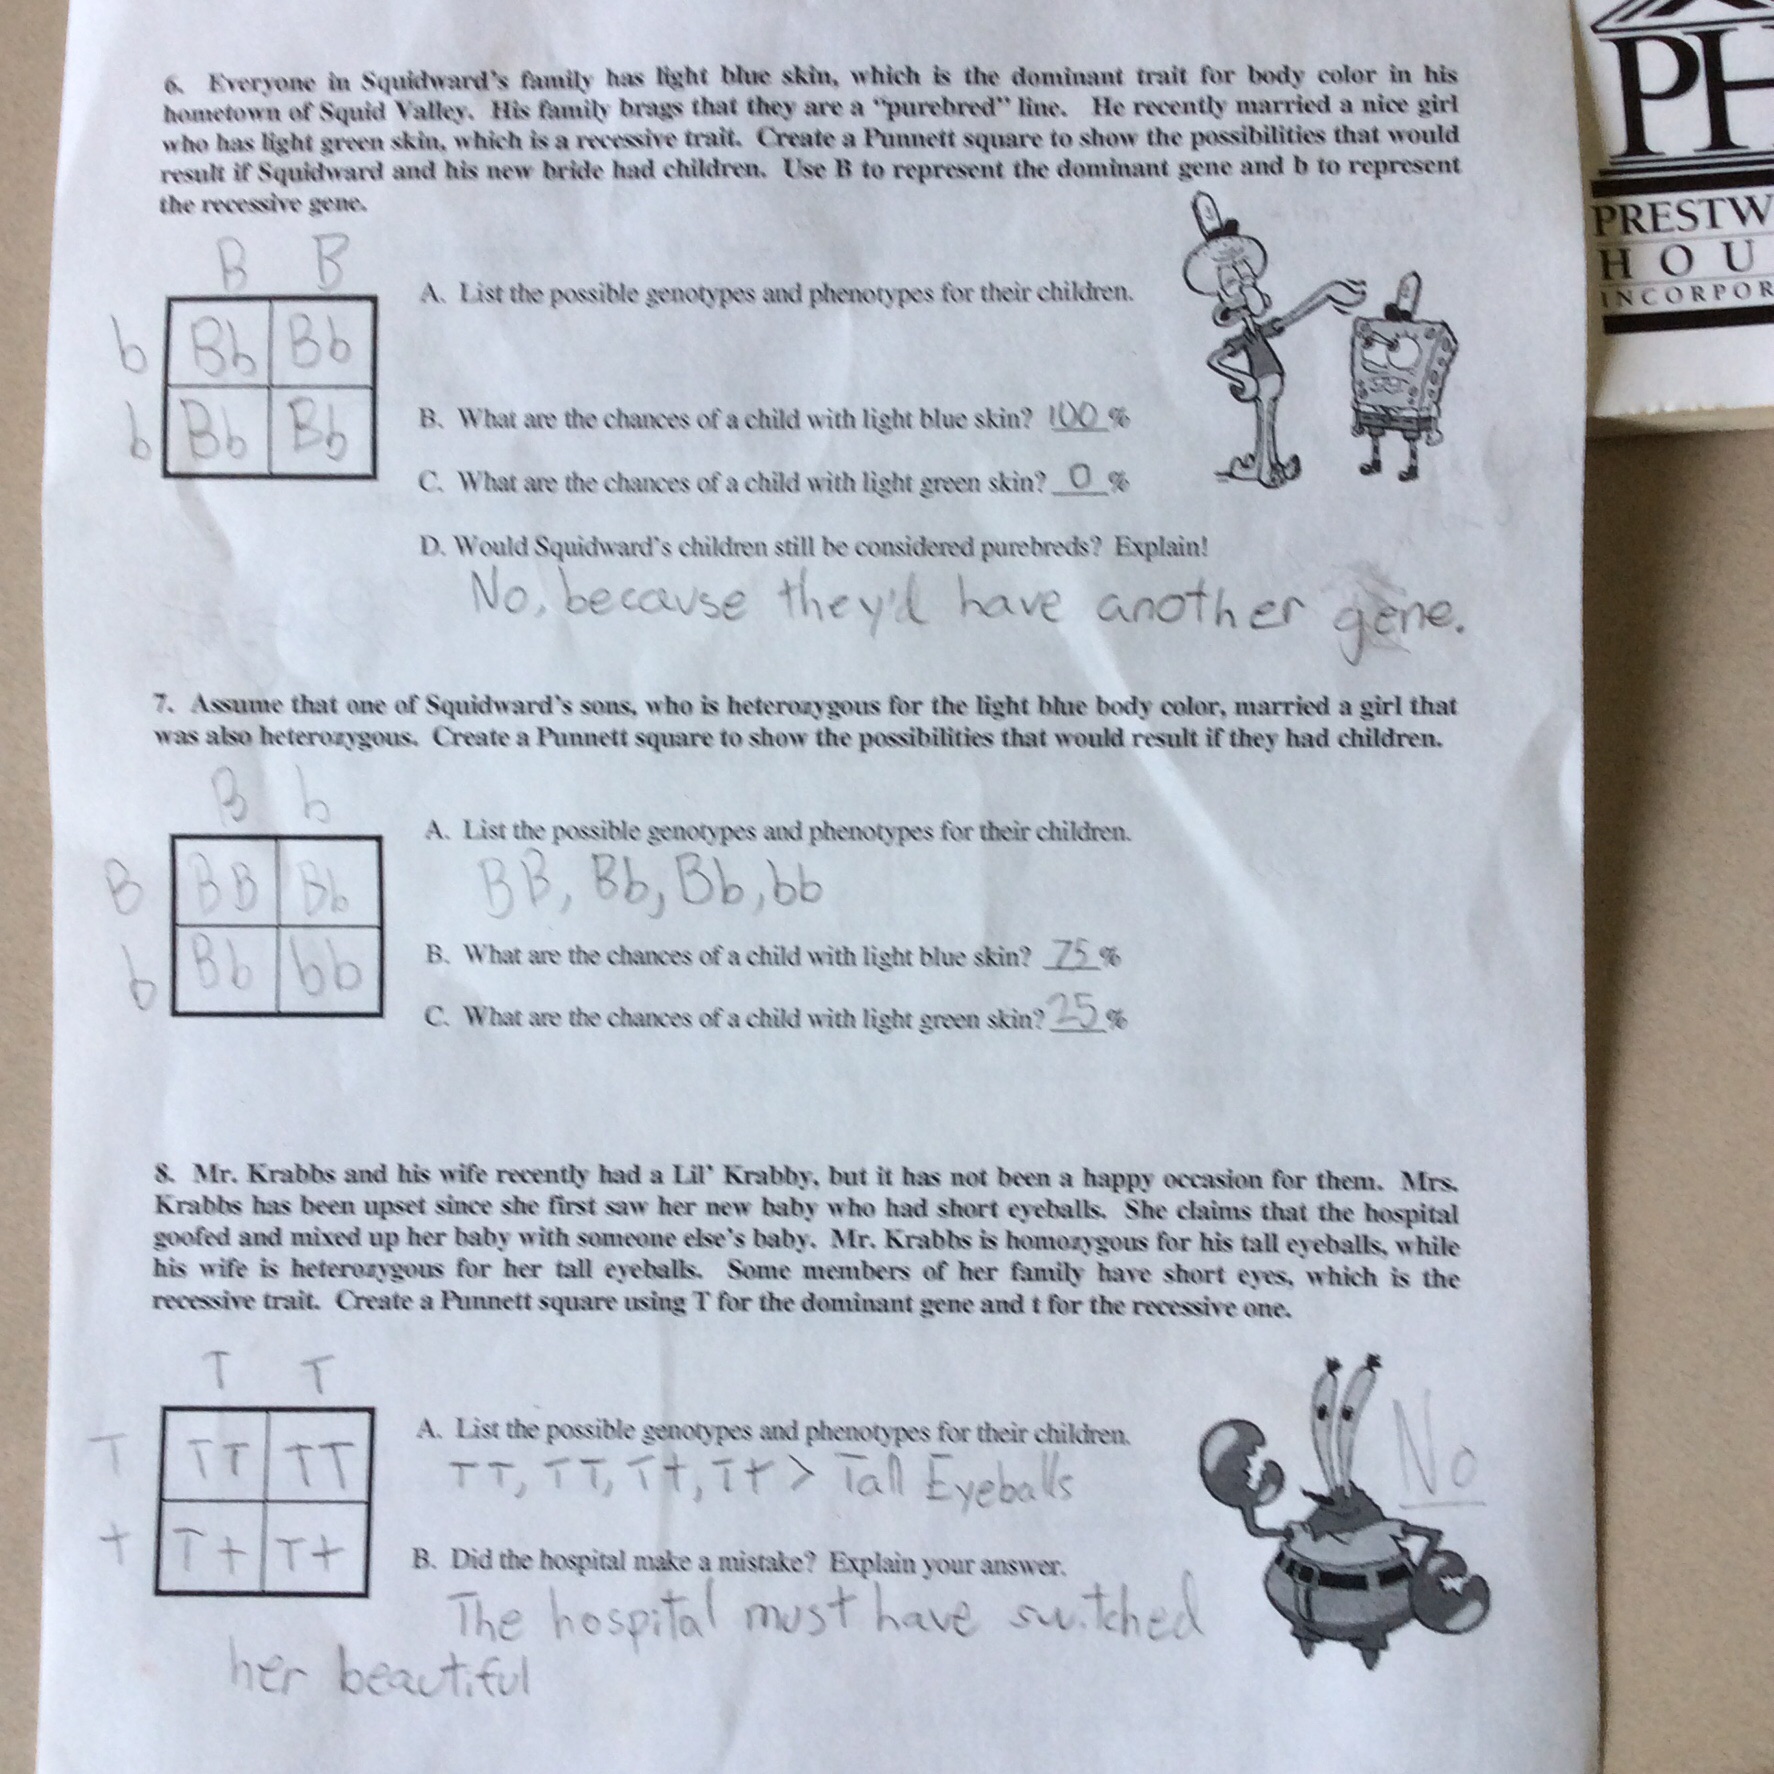 6. Everyone in Squidward's family has light blue skin, which is the dominant trait for body color in his
hometown of Squid Valley. His family brags that they are a "purebred" line. He recently married a nice girl
who has light green skin, which is a recessive trait. Create a Punnett square to show the possibilities that would
result if Squidward and his new bride had children. Use B to represent the dominant gene and b to represent
the recessive gene.
B B
b Bb Bb
b Bb Bb
A. List the possible genotypes and phenotypes for their children.
B. What are the chances of a child with light blue skin? 100 %
C. What are the chances of a child with light green skin? 0 %
D. Would Squidward's children still be considered purebreds? Explain!
No, because they'd have another gene.
7. Assume that one of Squidward's sons, who is heterozygous for the light blue body color, married a girl that
was also heterozygous. Create a Punnett square to show the possibilities that would result if they had children.
B b
B BB Bb
b Bb bb
A. List the possible genotypes and phenotypes for their children.
BB, Bb, Bb, bb
B. What are the chances of a child with light blue skin? 75 %
C. What are the chances of a child with light green skin? 25 %
8. Mr. Krabbs and his wife recently had a Lil' Krabby, but it has not been a happy occasion for them. Mrs.
Krabbs has been upset since she first saw her new baby who had short eyeballs. She claims that the hospital
goofed and mixed up her baby with someone else's baby. Mr. Krabbs is homozygous for his tall eyeballs, while
his wife is heterozygous for her tall eyeballs. Some members of her family have short eyes, which is the
recessive trait. Create a Punnett square using T for the dominant gene and t for the recessive one.
T T
T TT TT
t Tt Tt
A. List the possible genotypes and phenotypes for their children.
TT, TT, Tt, Tt > Tall Eyeballs
No
B. Did the hospital make a mistake? Explain your answer.
The hospital must have switched
her beautiful
PH
PRESTW
HOU
INCORPOR